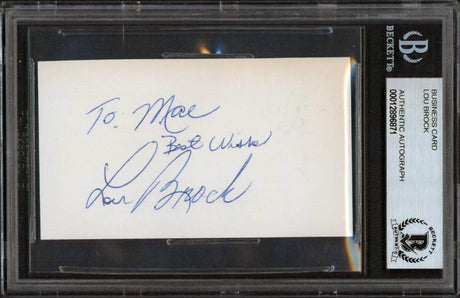 To: Mae
Best Wishes
Lou Brock
BECKETT
BUSINESS CARD
LOU BROCK
AUTHENTIC AUTOGRAPH
00012896871
BECKETT